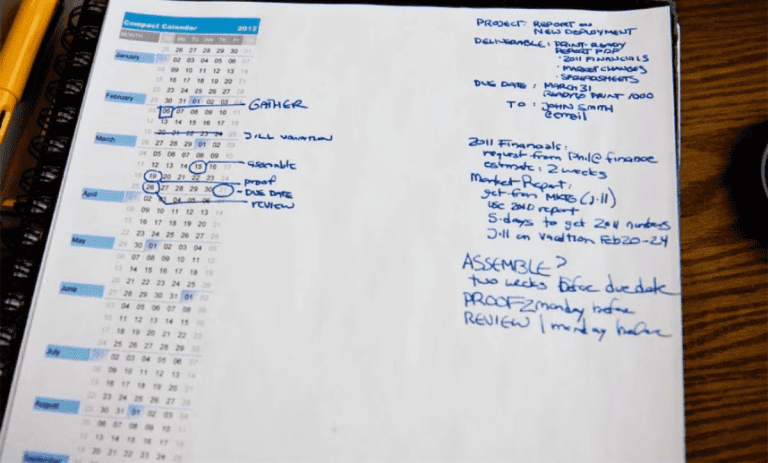 Compact Calendar 2012
MONTH Mo Tu We Th Fr
January 26 27 28 29 30
02 03 04 05 06
09 10 11 12 13
16 17 18 19 20
23 24 25 26 27
February 30 31 01 02 03
06 07 08 09 10 GATHER
13 14 15 16 17
20 21 22 23 24 JILL VACATION
March 27 28 29 01 02
05 06 07 08 09
12 13 14 15 16 assemble
19 20 21 22 23 proof
26 27 28 29 30 DUE DATE
April 02 03 04 05 06 REVIEW
09 10 11 12 13
16 17 18 19 20
23 24 25 26 27
May 30 01 02 03 04
07 08 09 10 11
14 15 16 17 18
21 22 23 24 25
June 28 29 30 31 01
04 05 06 07 08
11 12 13 14 15
18 19 20 21 22
25 26 27 28 29
July 02 03 04 05 06
09 10 11 12 13
16 17 18 19 20
23 24 25 26 27
August 30 31 01 02 03
06 07 08 09 10
13 14 15 16 17
20 21 22 23 24
September
PROJECT: REPORT on
NEW DEPLOYMENT
DELIVERABLE: PRINT-READY
REPORT PDF
· 2011 FINANCIALS
· MARKET CHANGES
· SPREADSHEETS
DUE DATE: MARCH 31
READY TO PRINT 1000
TO: JOHN SMITH
@email
2011 Financials:
request from Phil@finance
estimate: 2 weeks
Market Report:
get from MKTG (Jill)
use 2010 report
5-days to get 2011 numbers
Jill on vacation Feb 20-24
ASSEMBLE?
two weeks before due date
PROOF 2 monday before
REVIEW 1 monday before